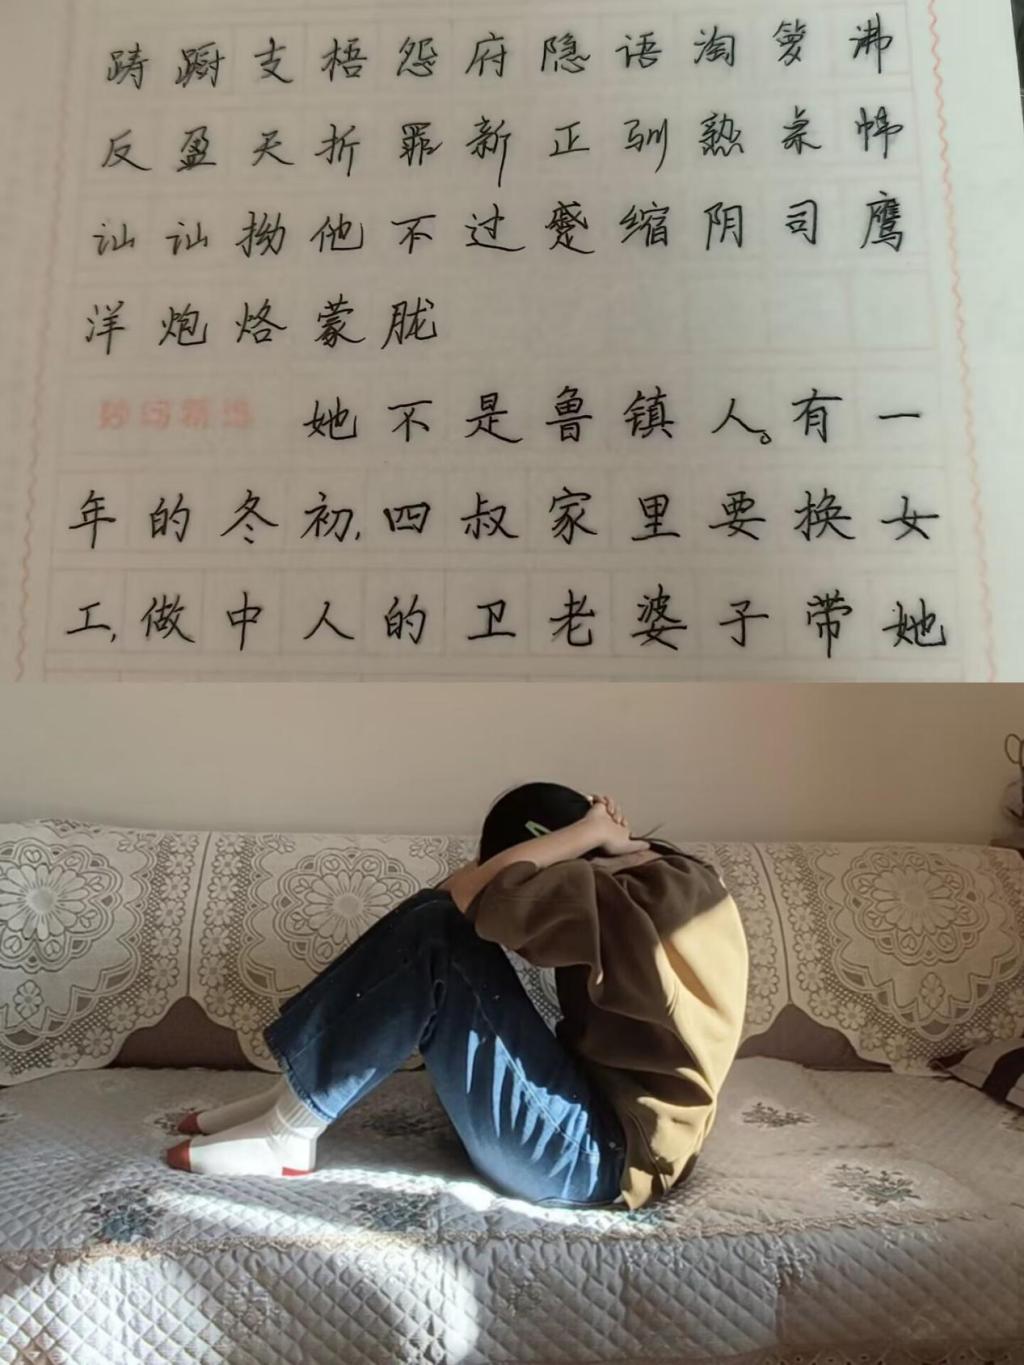 踌蹰支梧怨府隐语淘箩沸
反盈天折罪新正驯熟桌帏
讪讪拗他不过蹙缩阴司鹰
洋炮烙蒙胧
妙句精选 她不是鲁镇人。有一
年的冬初,四叔家里要换女
工,做中人的卫老婆子带她